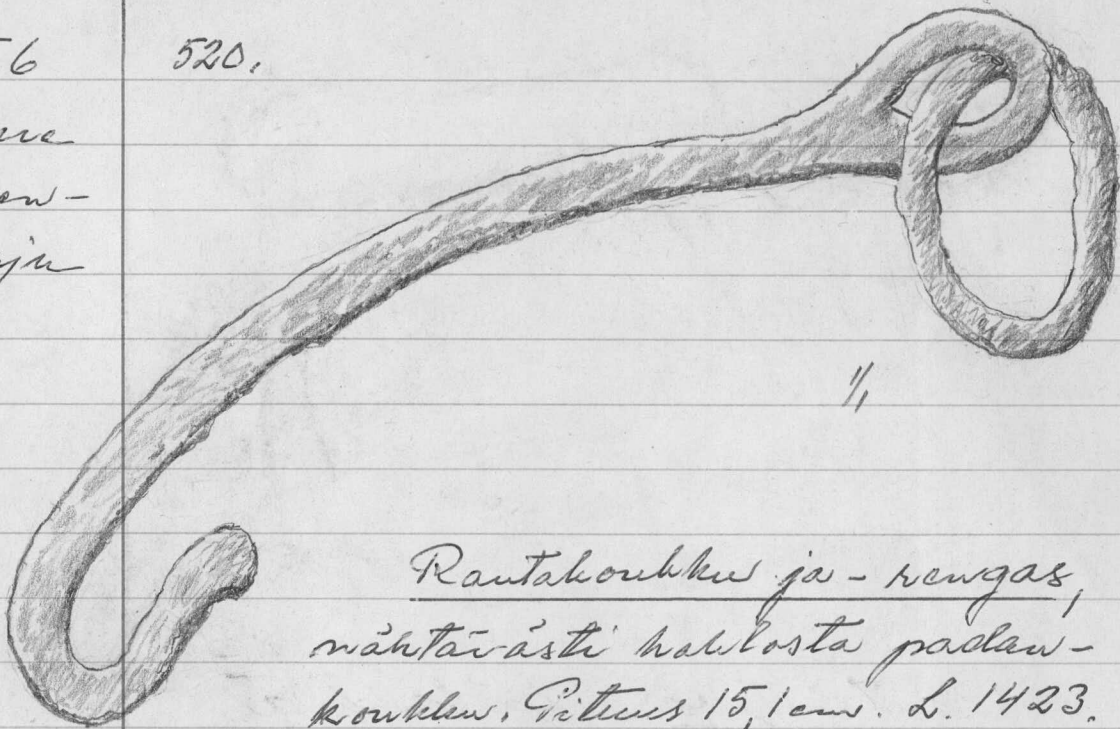 56
520.
1/1
Rautakoukku ja -rengas,
nähtävästi hahlosta padan-
koukku. Pituus 15,1 cm. L. 1423.